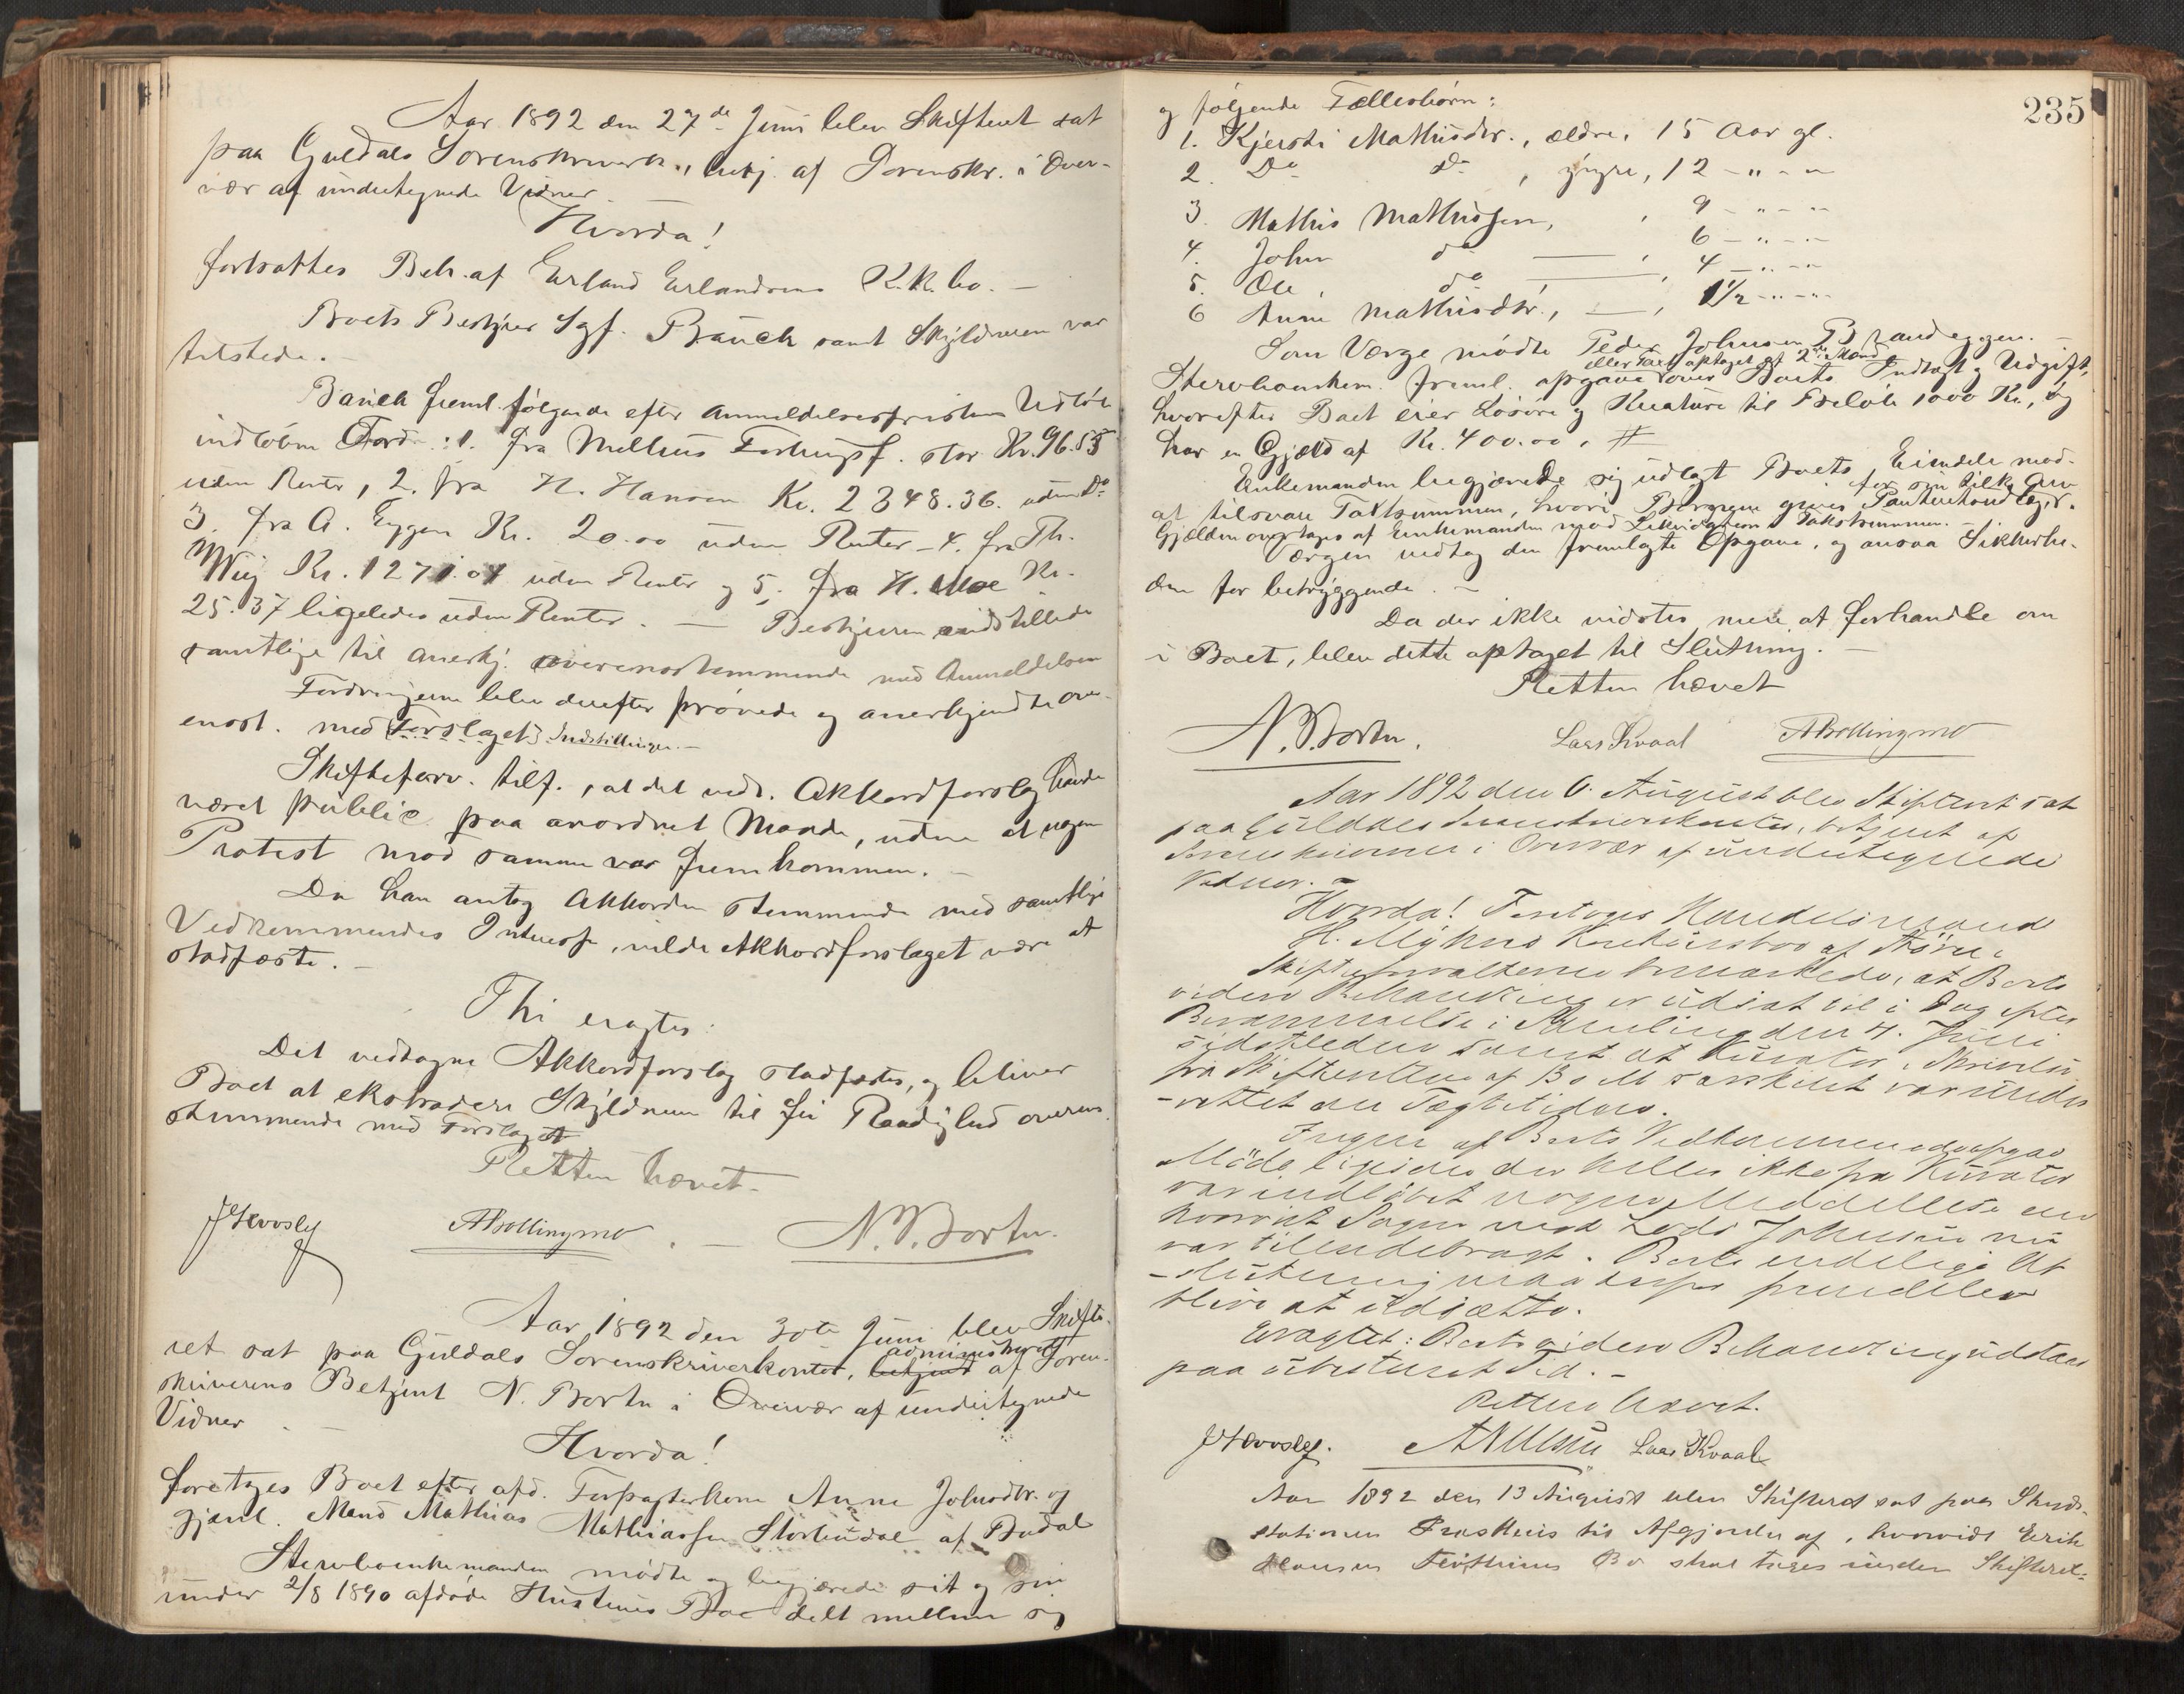 Aar 1892 den 27de Juni blev Skifteret sat
paa Guldals Sorenskriverk., betj. af Sorenskr. i Over-
vær af undertegnede Vidner
Hvorda!
fortsattes Beh. af Erland Erlandsens K.k.bo. -
Boets Bestyrer Sgf. Bauck samt Skyldneren var
tilstede. -
Bauck freml. følgende efter Anmeldelsesfristens Udløb
indløbne Ford.: 1. fra Melhus Forbrugsf. stor Kr. 96.55
uden Renter, 2. fra H. Hansen Kr. 2348.36. uden Do
3. fra A. Eggen Kr. 20.00 uden Renter - 4. fra Th.
Wiig Kr. 1271.01 uden Renter og 5. fra H. Moe Kr.
25.37 ligeledes uden Renter. - Bestyreren indstillede
samtlige til Anerkj. overensstemmende med Anmeldelsen
Fordringerne blev derefter prøvede og anerkjendte over-
ensst. med Forslaget Indstillingen. -
Skifteforv. tilf., at det vedt. Akkordforslag havde
været public. paa anordnet Maade, uden at nogen
Protest mod samme var fremkommen. -
Da han antog Akkorden stemmende med samtlige
Vedkommendes Interesse, vilde Akkordforslaget være at
stadfæste. -
Thi eragtes:
Det vedtagne Akkordforslag stadfæstes, og bliver
Boet at ekstradere Skyldneren til fri Raadighed overens-
stemmende med Forslaget
Retten hævet -
JHovsley ABollingmo. - N. P. Borten.
Aar 1892 den 30te Juni blev Skifte-
ret sat paa Guldals Sorenskriverkontor, betjent administreret af Soren-
skriverens Betjent N. Borten i Overvær af undertegnede
Vidner -
Hvorda!
foretoges Boet efter afd. Forpagterkone Anne Johnsdtr. og
gjenl. Mand Mathias Mathiassen Storbudal af Budal
Stervboenkemanden mødte og begjærede sit og sin
under 2/8 1890 afdøde Hustrues Bo delt mellem sig
235
og følgende Fællesbørn:
1. Kjersti Mathisdtr., ældre, 15 Aar gl.
2. Do do, yngre, 12 - " - "
3. Mathis Mathissen, , 9 - " - "
4. John do - , 6 - " - "
5. Ole do - , 4 - " - "
6 Anne Mathisdtr., - , 1 1/2 - " - "
Som Værge mødte Peder Johnsen Brandeggen. -
eller Takst optaget af 2de Mænd
Stervboenkem. freml. Opgave over Boets Indtægt og Udgift,
hvorefter Boet eier Løsøre og Kreature til Beløb 1000 Kr., og
har en Gjæld af Kr. 400.00. #
Enkemanden begjærede sig udlagt Boets Eiendele mod
at tilsvare Takstsummen, hvori Børnene gives Panteret for sin tilk. Arv
Gjælden overtages af Enkemanden mod Likvidation i Takstsummen. -
Værgen vedtog den fremlagte Opgave, og ansaa Sikkerhe-
den for betryggende. -
Da der ikke vidstes mere at forhandle om
i Boet, blev dette optaget til Slutning. -
Retten hævet
N. P. Borten. Lars Kvaal ABollingmo
Aar 1892 den 6. August blev Skifteret sat
paa Guldals Sorenskriverkontor, betjent af
Sorenskriveren i Overvær af undertegnede
Vidner. -
Hvorda! Foretoges Handelsmand
H. Konkursbo af Støren
Skifteforvalteren bemærkede, at Boets
videre Behandling er udsat til i Dag efter
Berammelse i Samling den 4. Juni
sidstleden samt at Kurator,
fra Skifteretten af Bo særskilt var under-
-rettet om Tægtetiden.
Ingen af Boets Vedkommende gav
Møde ligesom der heller ikke fra Kurator
var indløbet nogen Meddelelse om
hvorvidt Sagen mod Johnsen nu
var tilendebragt. Boets endelige Af-
-slutning maa derfor fremdeles
blive at udsætte.
Eragtet: Boets videre Behandling udstaar
paa ubestemt Tid. -
Retten hævet.
JHovsley. Lars Kvaal
Aar 1892 den 13 August blev Skifteret sat paa Skyds-
stationen til Afgjørelse af, hvorvidt Erik
Bo skal tages under Skifteret-